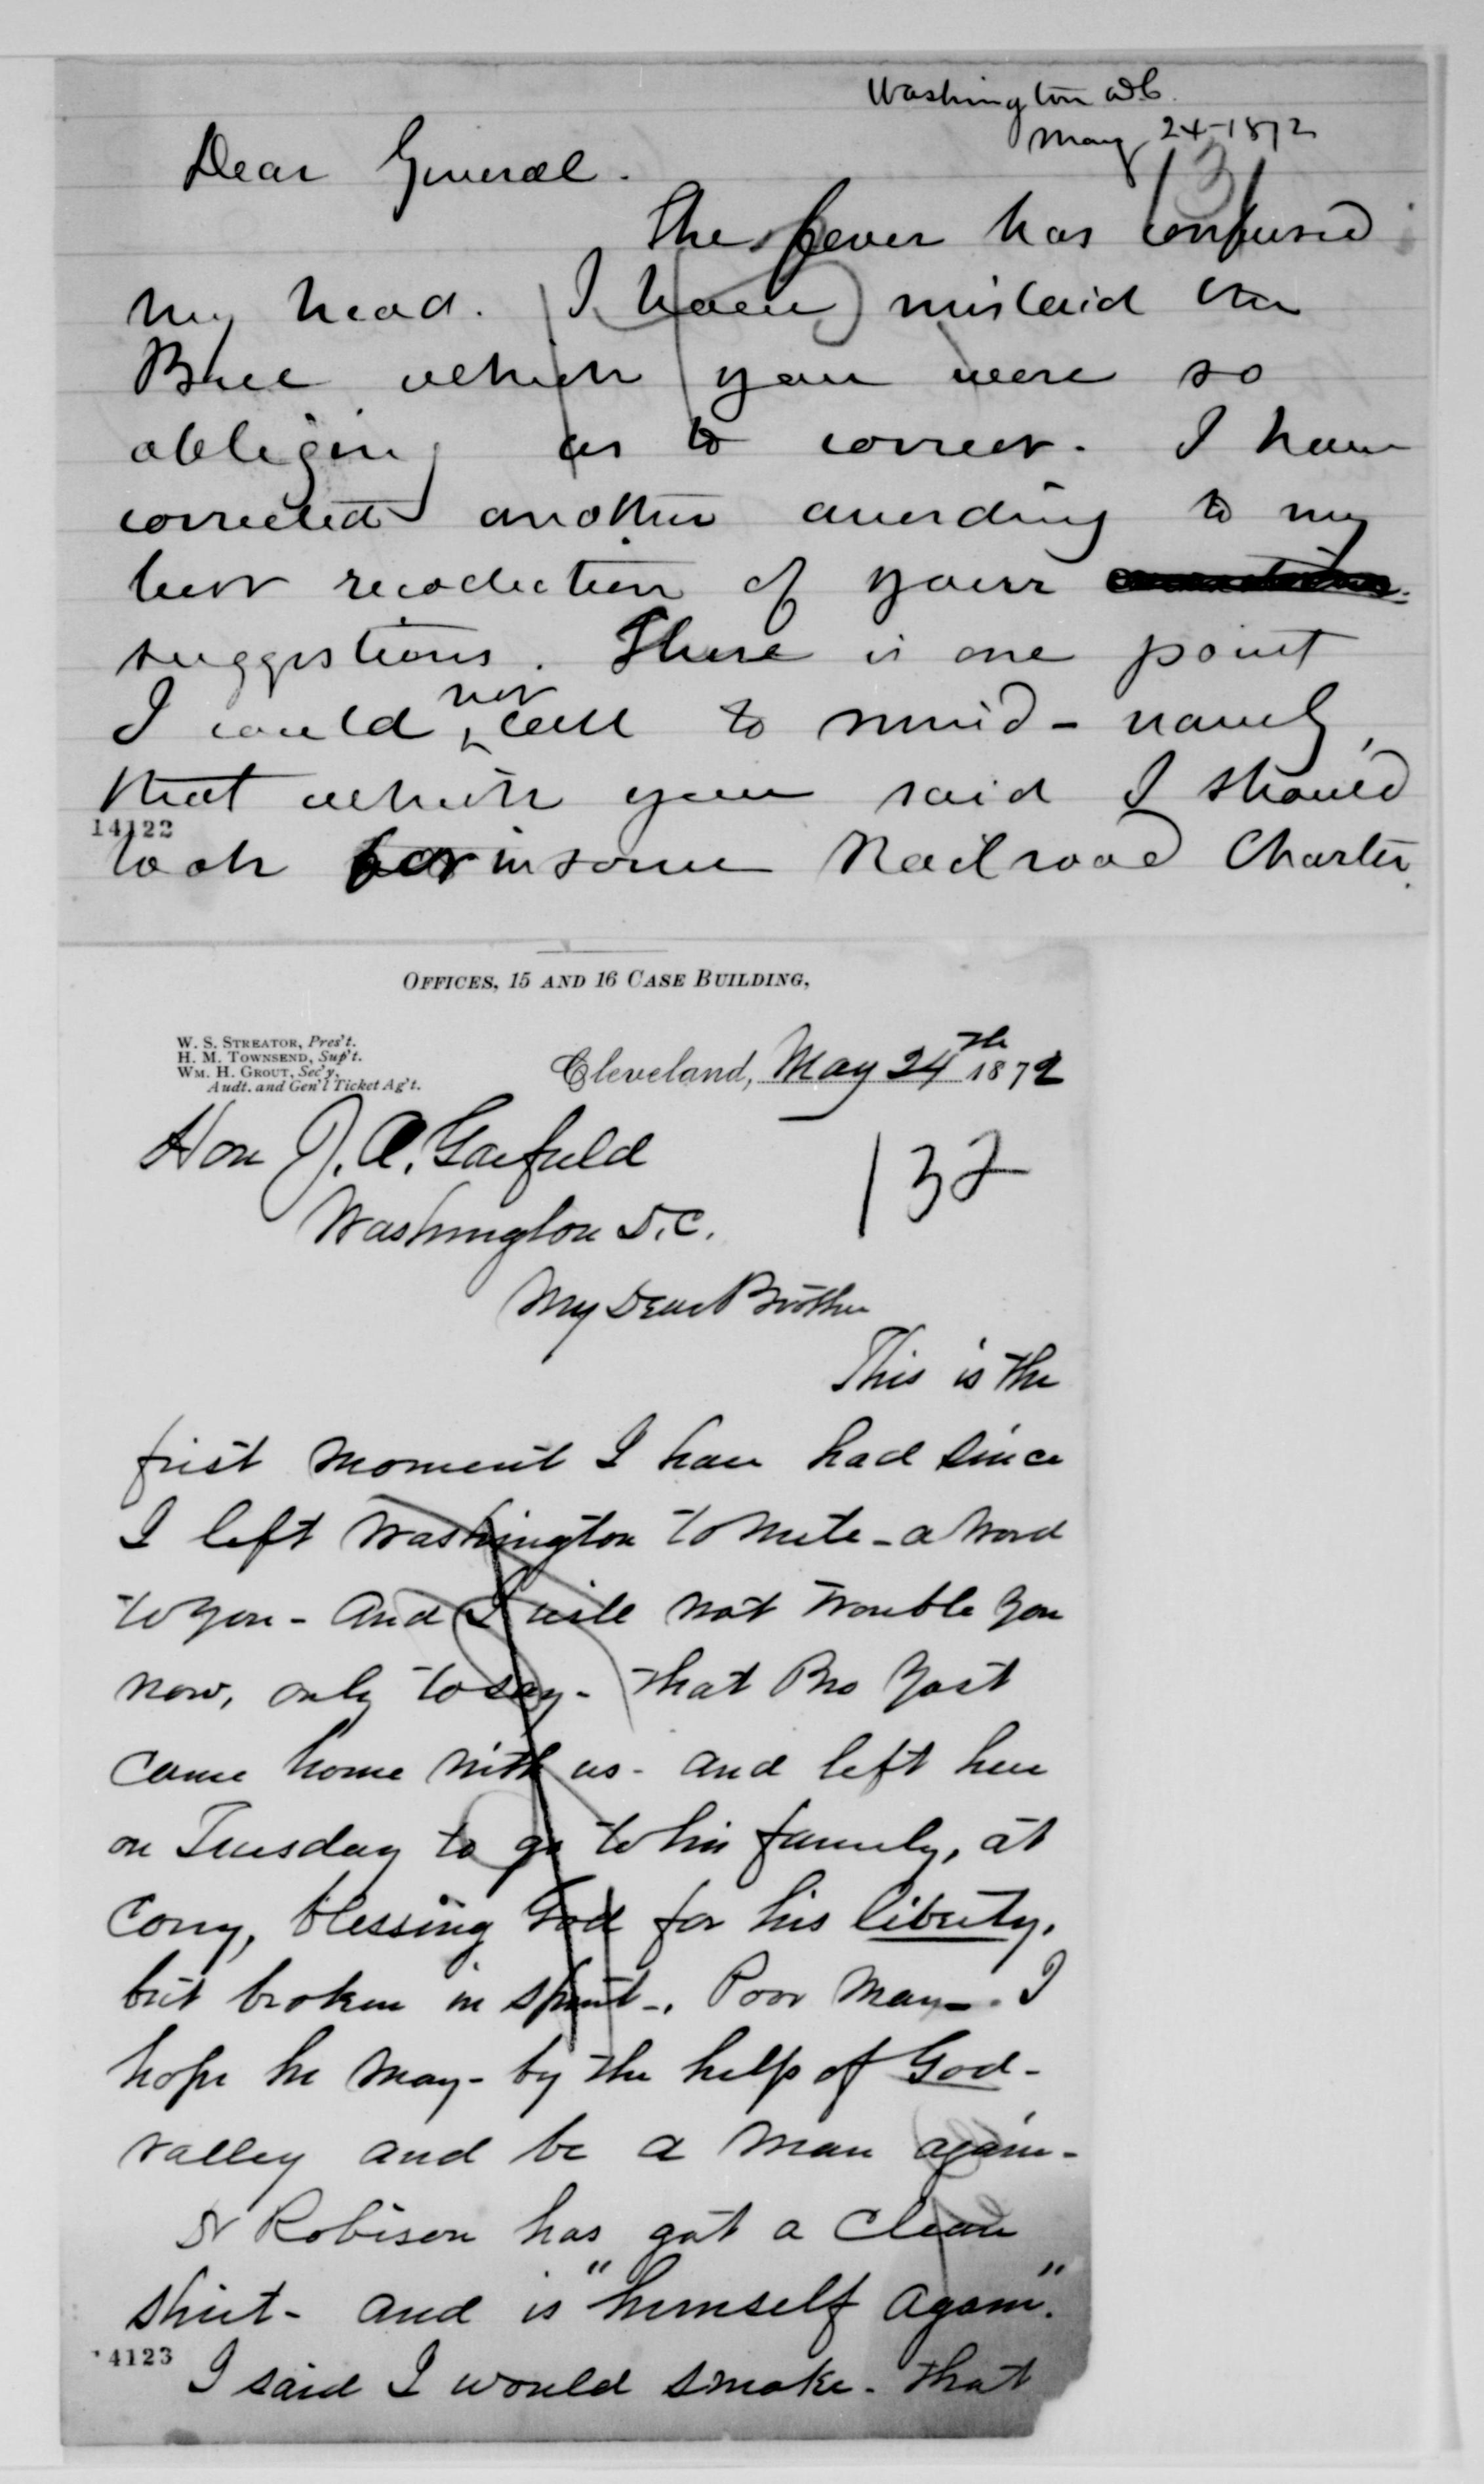 Washington D.C.
May 24-1872
131
Dear General.
The fever has confused
my head. I have mislaid the
Bill which you were so
obliging as to correct. I have
corrected another according to my
best recollection of your
suggestions. There is one point
I could not call to mind - namely,
that which you said I should
14122
look for in some Railroad Charter.
OFFICES, 15 AND 16 CASE BUILDING,
W. S. STREATOR, Pres't.
H. M. TOWNSEND, Sup't.
WM. H. GROUT, Sec'y,
Audt. and Gen'l Ticket Ag't.
Cleveland, May 24th 1872
Hon J. A. Garfield
132
Washington D.C.
My Dear Brother
This is the
first moment I have had since
I left Washington to write - a word
to you - and I will not trouble you
now, only to say - that Bro Yost
came home with us - and left here
on Tuesday to go to his family, at
Corry, blessing God for his liberty,
but broken in spirit -. Poor Man -. I
hope he may - by the help of God -
ralley and be a man again -
Dr Robison has got a clean
shirt - and is "himself again".
14123
I said I would smoke - that